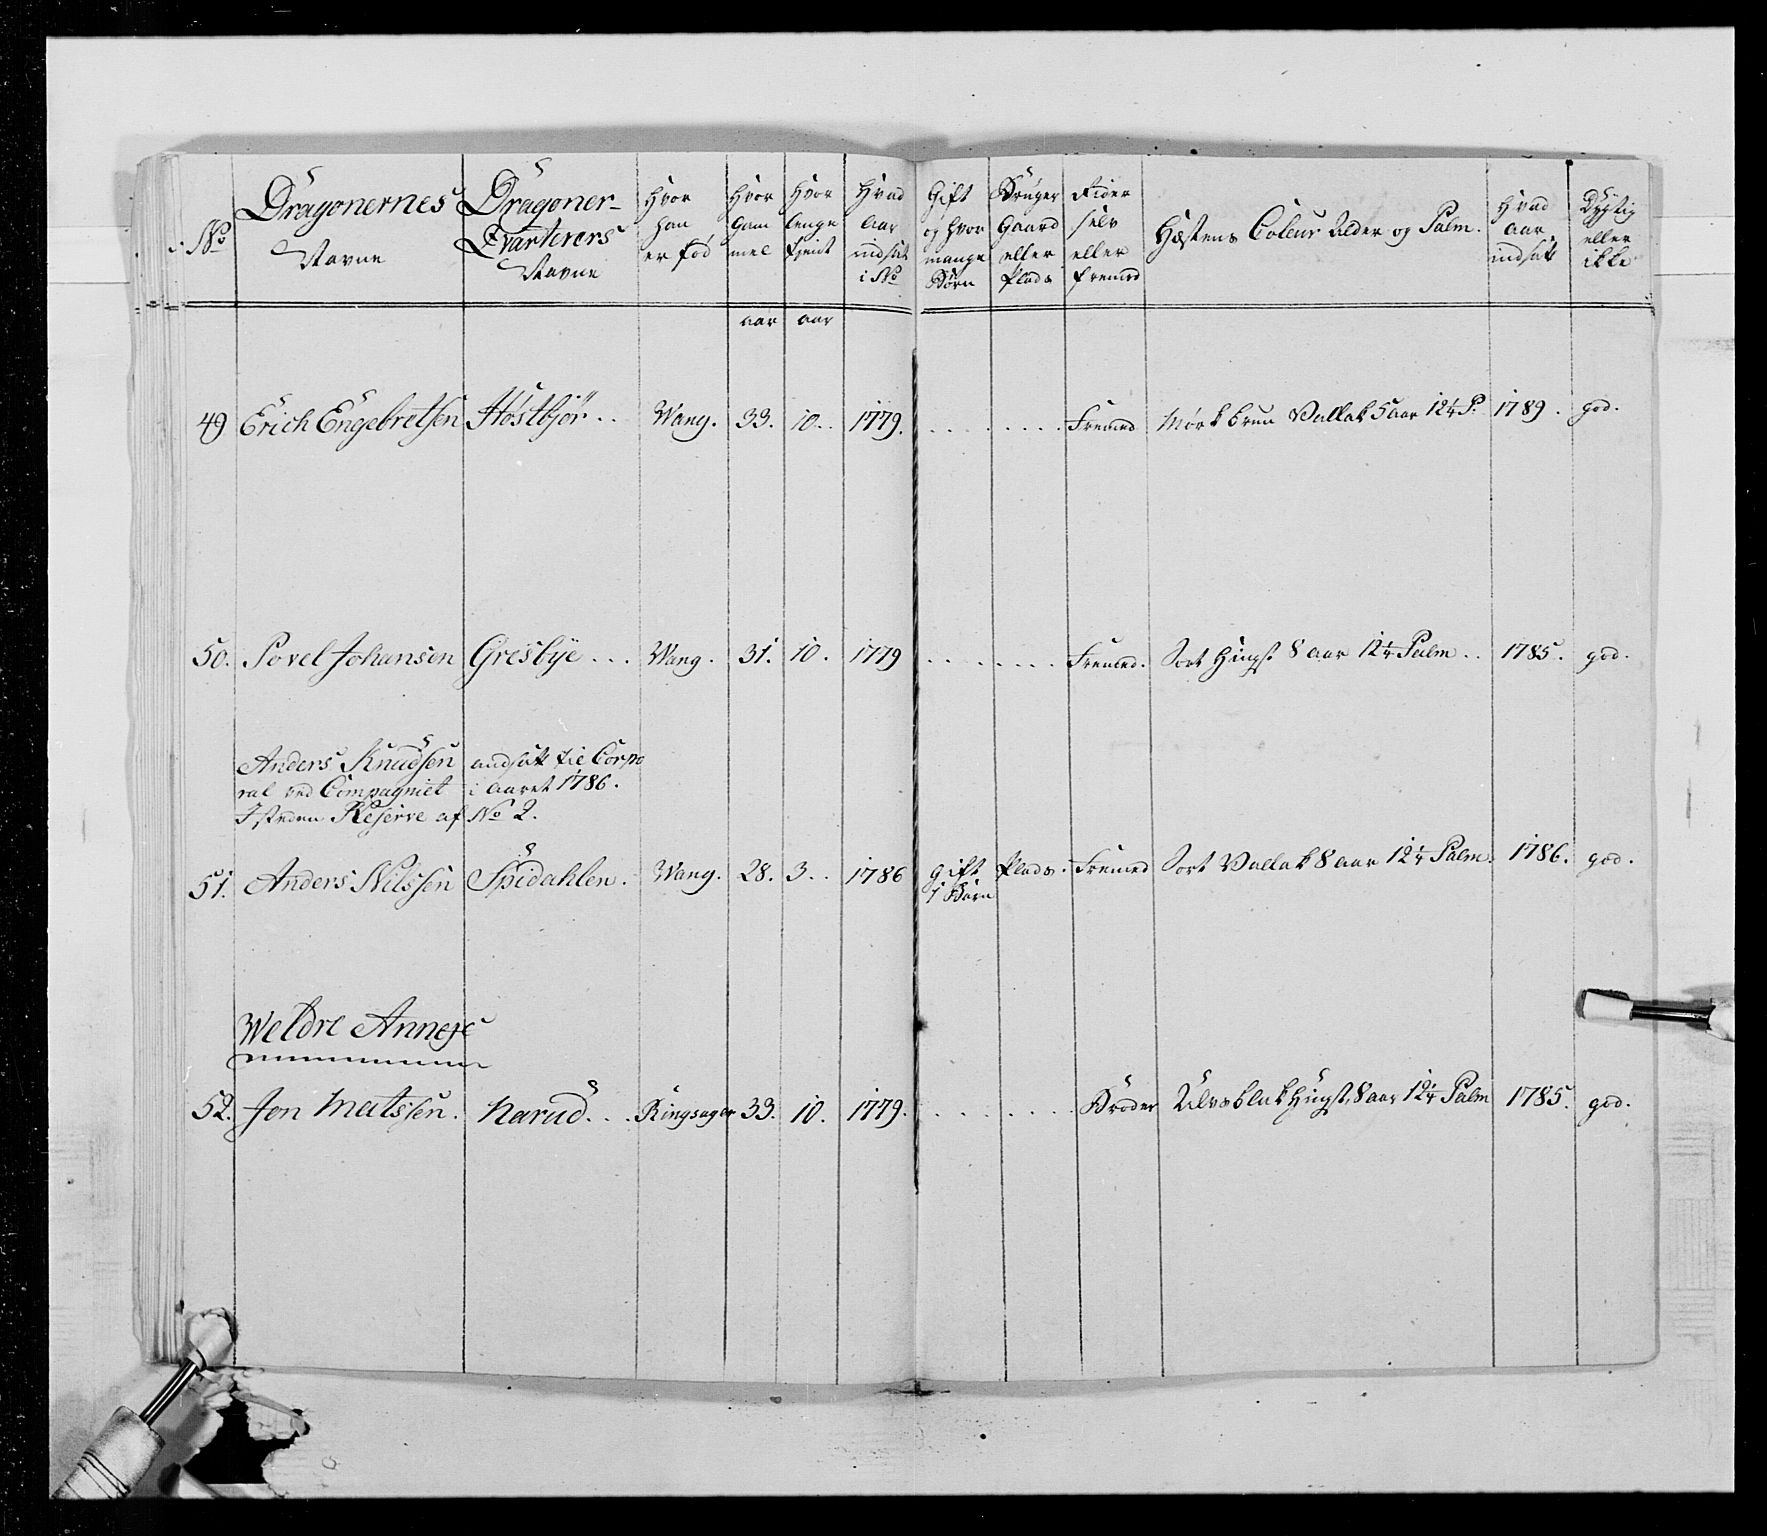 No
Dragonernes Navne
Dragoner-Qvarterers Navne
Hvor han er fød
Hvor Gam mel
Hvor lenge tjent
Hvad aar indsat i No
Gift og Hvor mange Børn
Bruger Gaard eller Plads
Rider selv eller fremed
Hæstens Coleur Alder og Palm.
Hvad aar indsat
Dygtig eller ikke
aar aar
49 Erich Engebretsen Høstbjør .. Wang. 33. 10.. 1779. ........ Fremed Mørk brun Vallak 5 aar 12¼ P. 1789. god.
50. Povel Johansen Gresbye ... Wang. 31. 10. 1779 ........ Fremed. Sort Hingst 8 aar 12¼ Palm .. 1785. god.
Anders Knudsen andsatt til Corpo
ral ved Compagniet i aaret 1786.
Isteden Reserve af No 2.
51. Anders Nilssen Spidahlen. Wang. 28. 3.. 1786 Gift 1 Barn Plads. Fremed Sort Vallak 8 aar 12¼ Palm. 1786. god.
Weldre Annexe
52. Jon Matssen. Narud ... Ringsager 33. 10. 1779. ........ Broder Ulvsblak Hingst, 8 aar 12¼ Palm 1785. god.